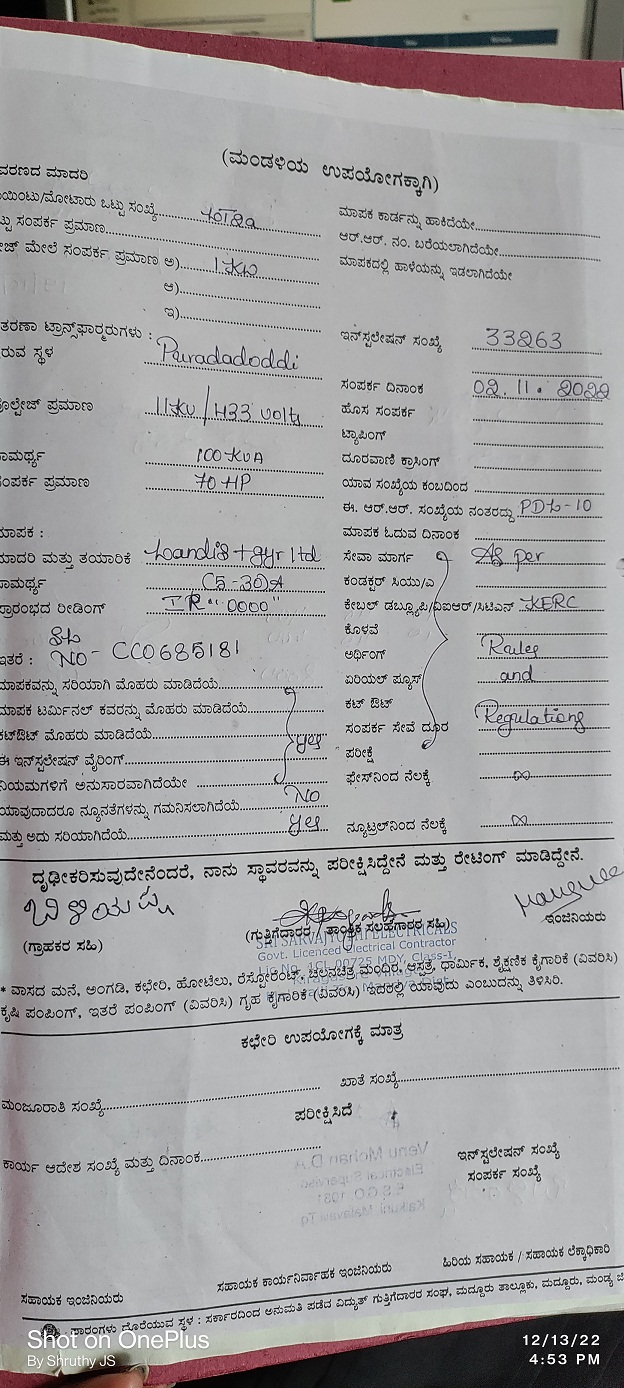 (ಮಂಡಳಿಯ ಉಪಯೋಗಕ್ಕಾಗಿ)
ವರಣದ ಮಾದರಿ
ಯಿಂಟು/ಮೋಟಾರು ಒಟ್ಟು ಸಂಖ್ಯೆ
ಟ್ಟು ಸಂಪರ್ಕ ಪ್ರಮಾಣ
ಮೇಲೆ ಸಂಪರ್ಕ ಪ್ರಮಾಣ ಅ) 1 KW
ಆ)
ಇ)
ತರಣಾ ಟ್ರಾನ್ಸ್‌ಫಾರ್ಮರುಗಳು :
ರುವ ಸ್ಥಳ Puradadoddi
ಪ್ರಮಾಣ 11KV / 433 Volts
ಾಮರ್ಥ್ಯ 100 KVA
ಸಂಪರ್ಕ ಪ್ರಮಾಣ 70 HP
ಮಾಪಕ :
ಮಾದರಿ ಮತ್ತು ತಯಾರಿಕೆ Landis + gyr ltd
ಾಮರ್ಥ್ಯ C5-30A
ಪ್ರಾರಂಭದ ರೀಡಿಂಗ್ IR "0000"
ಇತರೆ : NO - CC0685181
ಮಾಪಕವನ್ನು ಸರಿಯಾಗಿ ಮೊಹರು ಮಾಡಿದೆಯೆ
ಮಾಪಕ ಟರ್ಮಿನಲ್ ಕವರನ್ನು ಮೊಹರು ಮಾಡಿದೆಯೆ
ಕಟ್‌ಔಟ್ ಮೊಹರು ಮಾಡಿದೆಯೆ Yes
ಈ ಇನ್‌ಸ್ಟಲೇಷನ್ ವೈರಿಂಗ್
ನಿಯಮಗಳಿಗೆ ಅನುಸಾರವಾಗಿದೆಯೇ
ಯಾವುದಾದರೂ ನ್ಯೂನತೆಗಳನ್ನು ಗಮನಿಸಲಾಗಿದೆಯೆ No
ಮತ್ತು ಅದು ಸರಿಯಾಗಿದೆಯೆ Yes
ಮಾಪಕ ಕಾರ್ಡನ್ನು ಹಾಕಿದೆಯೇ
ಆರ್.ಆರ್. ನಂ. ಬರೆಯಲಾಗಿದೆಯೇ
ಮಾಪಕದಲ್ಲಿ ಹಾಳೆಯನ್ನು ಇಡಲಾಗಿದೆಯೇ
ಇನ್‌ಸ್ಟಲೇಷನ್ ಸಂಖ್ಯೆ 33263
ಸಂಪರ್ಕ ದಿನಾಂಕ 02.11.2022
ಹೊಸ ಸಂಪರ್ಕ
ಟ್ಯಾಪಿಂಗ್
ದೂರವಾಣಿ ಕ್ರಾಸಿಂಗ್
ಯಾವ ಸಂಖ್ಯೆಯ ಕಂಬದಿಂದ
ಈ. ಆರ್.ಆರ್. ಸಂಖ್ಯೆಯ ನಂತರದ್ದು PDL-10
ಮಾಪಕ ಓದುವ ದಿನಾಂಕ
ಸೇವಾ ಮಾರ್ಗ As per
ಕಂಡಕ್ಟರ್ ಸಿಯು/ಎ
ಕೇಬಲ್ ಡಬ್ಲ್ಯೂಪಿ/ವಿಐಆರ್/ಸಿಟಿಎಸ್ KERC
ಕೊಳವೆ
ಅರ್ಥಿಂಗ್ Rules
ಏರಿಯಲ್ ಫ್ಯೂಸ್ and
ಕಟ್ ಔಟ್
ಸಂಪರ್ಕ ಸೇವೆ ದೂರ Regulations
ಪರೀಕ್ಷೆ
ಫೇಸ್‌ನಿಂದ ನೆಲಕ್ಕೆ ∞
ನ್ಯೂಟ್ರಲ್‌ನಿಂದ ನೆಲಕ್ಕೆ ∞
ದೃಢೀಕರಿಸುವುದೇನೆಂದರೆ, ನಾನು ಸ್ಥಾವರವನ್ನು ಪರೀಕ್ಷಿಸಿದ್ದೇನೆ ಮತ್ತು ರೇಟಿಂಗ್ ಮಾಡಿದ್ದೇನೆ.
(ಗ್ರಾಹಕರ ಸಹಿ)
(ಗುತ್ತಿಗೆದಾರರ / ತಾಂತ್ರಿಕ ಸಲಹೆಗಾರರ ಸಹಿ)
ಇಂಜಿನಿಯರು
SRI SARVAJYOTHI ELECTRICALS
Govt. Licenced Electrical Contractor
00725 MDY, Class-1,
* ವಾಸದ ಮನೆ, ಅಂಗಡಿ, ಕಛೇರಿ, ಹೋಟೆಲು, ರೆಸ್ಟೋರೆಂಟ್, ಚಲನಚಿತ್ರ ಮಂದಿರ, ಆಸ್ಪತ್ರೆ, ಧಾರ್ಮಿಕ, ಶೈಕ್ಷಣಿಕ ಕೈಗಾರಿಕೆ (ವಿವರಿಸಿ)
ಕೃಷಿ ಪಂಪಿಂಗ್, ಇತರೆ ಪಂಪಿಂಗ್ (ವಿವರಿಸಿ) ಗೃಹ ಕೈಗಾರಿಕೆ (ವಿವರಿಸಿ) ಇದರಲ್ಲಿ ಯಾವುದು ಎಂಬುದನ್ನು ತಿಳಿಸಿರಿ.
ಕಛೇರಿ ಉಪಯೋಗಕ್ಕೆ ಮಾತ್ರ
ಮಂಜೂರಾತಿ ಸಂಖ್ಯೆ
ಖಾತೆ ಸಂಖ್ಯೆ
ಪರೀಕ್ಷಿಸಿದೆ
ಕಾರ್ಯ ಆದೇಶ ಸಂಖ್ಯೆ ಮತ್ತು ದಿನಾಂಕ
ಇನ್‌ಸ್ಟಲೇಷನ್ ಸಂಖ್ಯೆ
ಸಂಪರ್ಕ ಸಂಖ್ಯೆ
ಸಹಾಯಕ ಇಂಜಿನಿಯರು
ಸಹಾಯಕ ಕಾರ್ಯನಿರ್ವಾಹಕ ಇಂಜಿನಿಯರು
ಹಿರಿಯ ಸಹಾಯಕ / ಸಹಾಯಕ ಲೆಕ್ಕಾಧಿಕಾರಿ
ದೊರೆಯುವ ಸ್ಥಳ : ಸರ್ಕಾರದಿಂದ ಅನುಮತಿ ಪಡೆದ ವಿದ್ಯುತ್ ಗುತ್ತಿಗೆದಾರರ ಸಂಘ, ಮದ್ದೂರು ತಾಲ್ಲೂಕು, ಮದ್ದೂರು, ಮಂಡ್ಯ
Shot on OnePlus
By Shruthy JS
12/13/22
4:53 PM